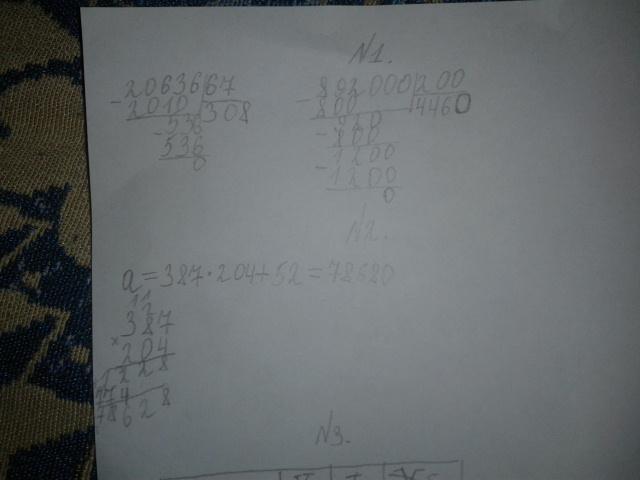 N1.
20636 67
- 2010 308
- 536
536
0
892000 200
- 800 4460
920
- 800
1200
- 1200
0
N2.
a = 387 · 204 + 52 = 78680
11
2
387
× 204
1
774
78628
N3.